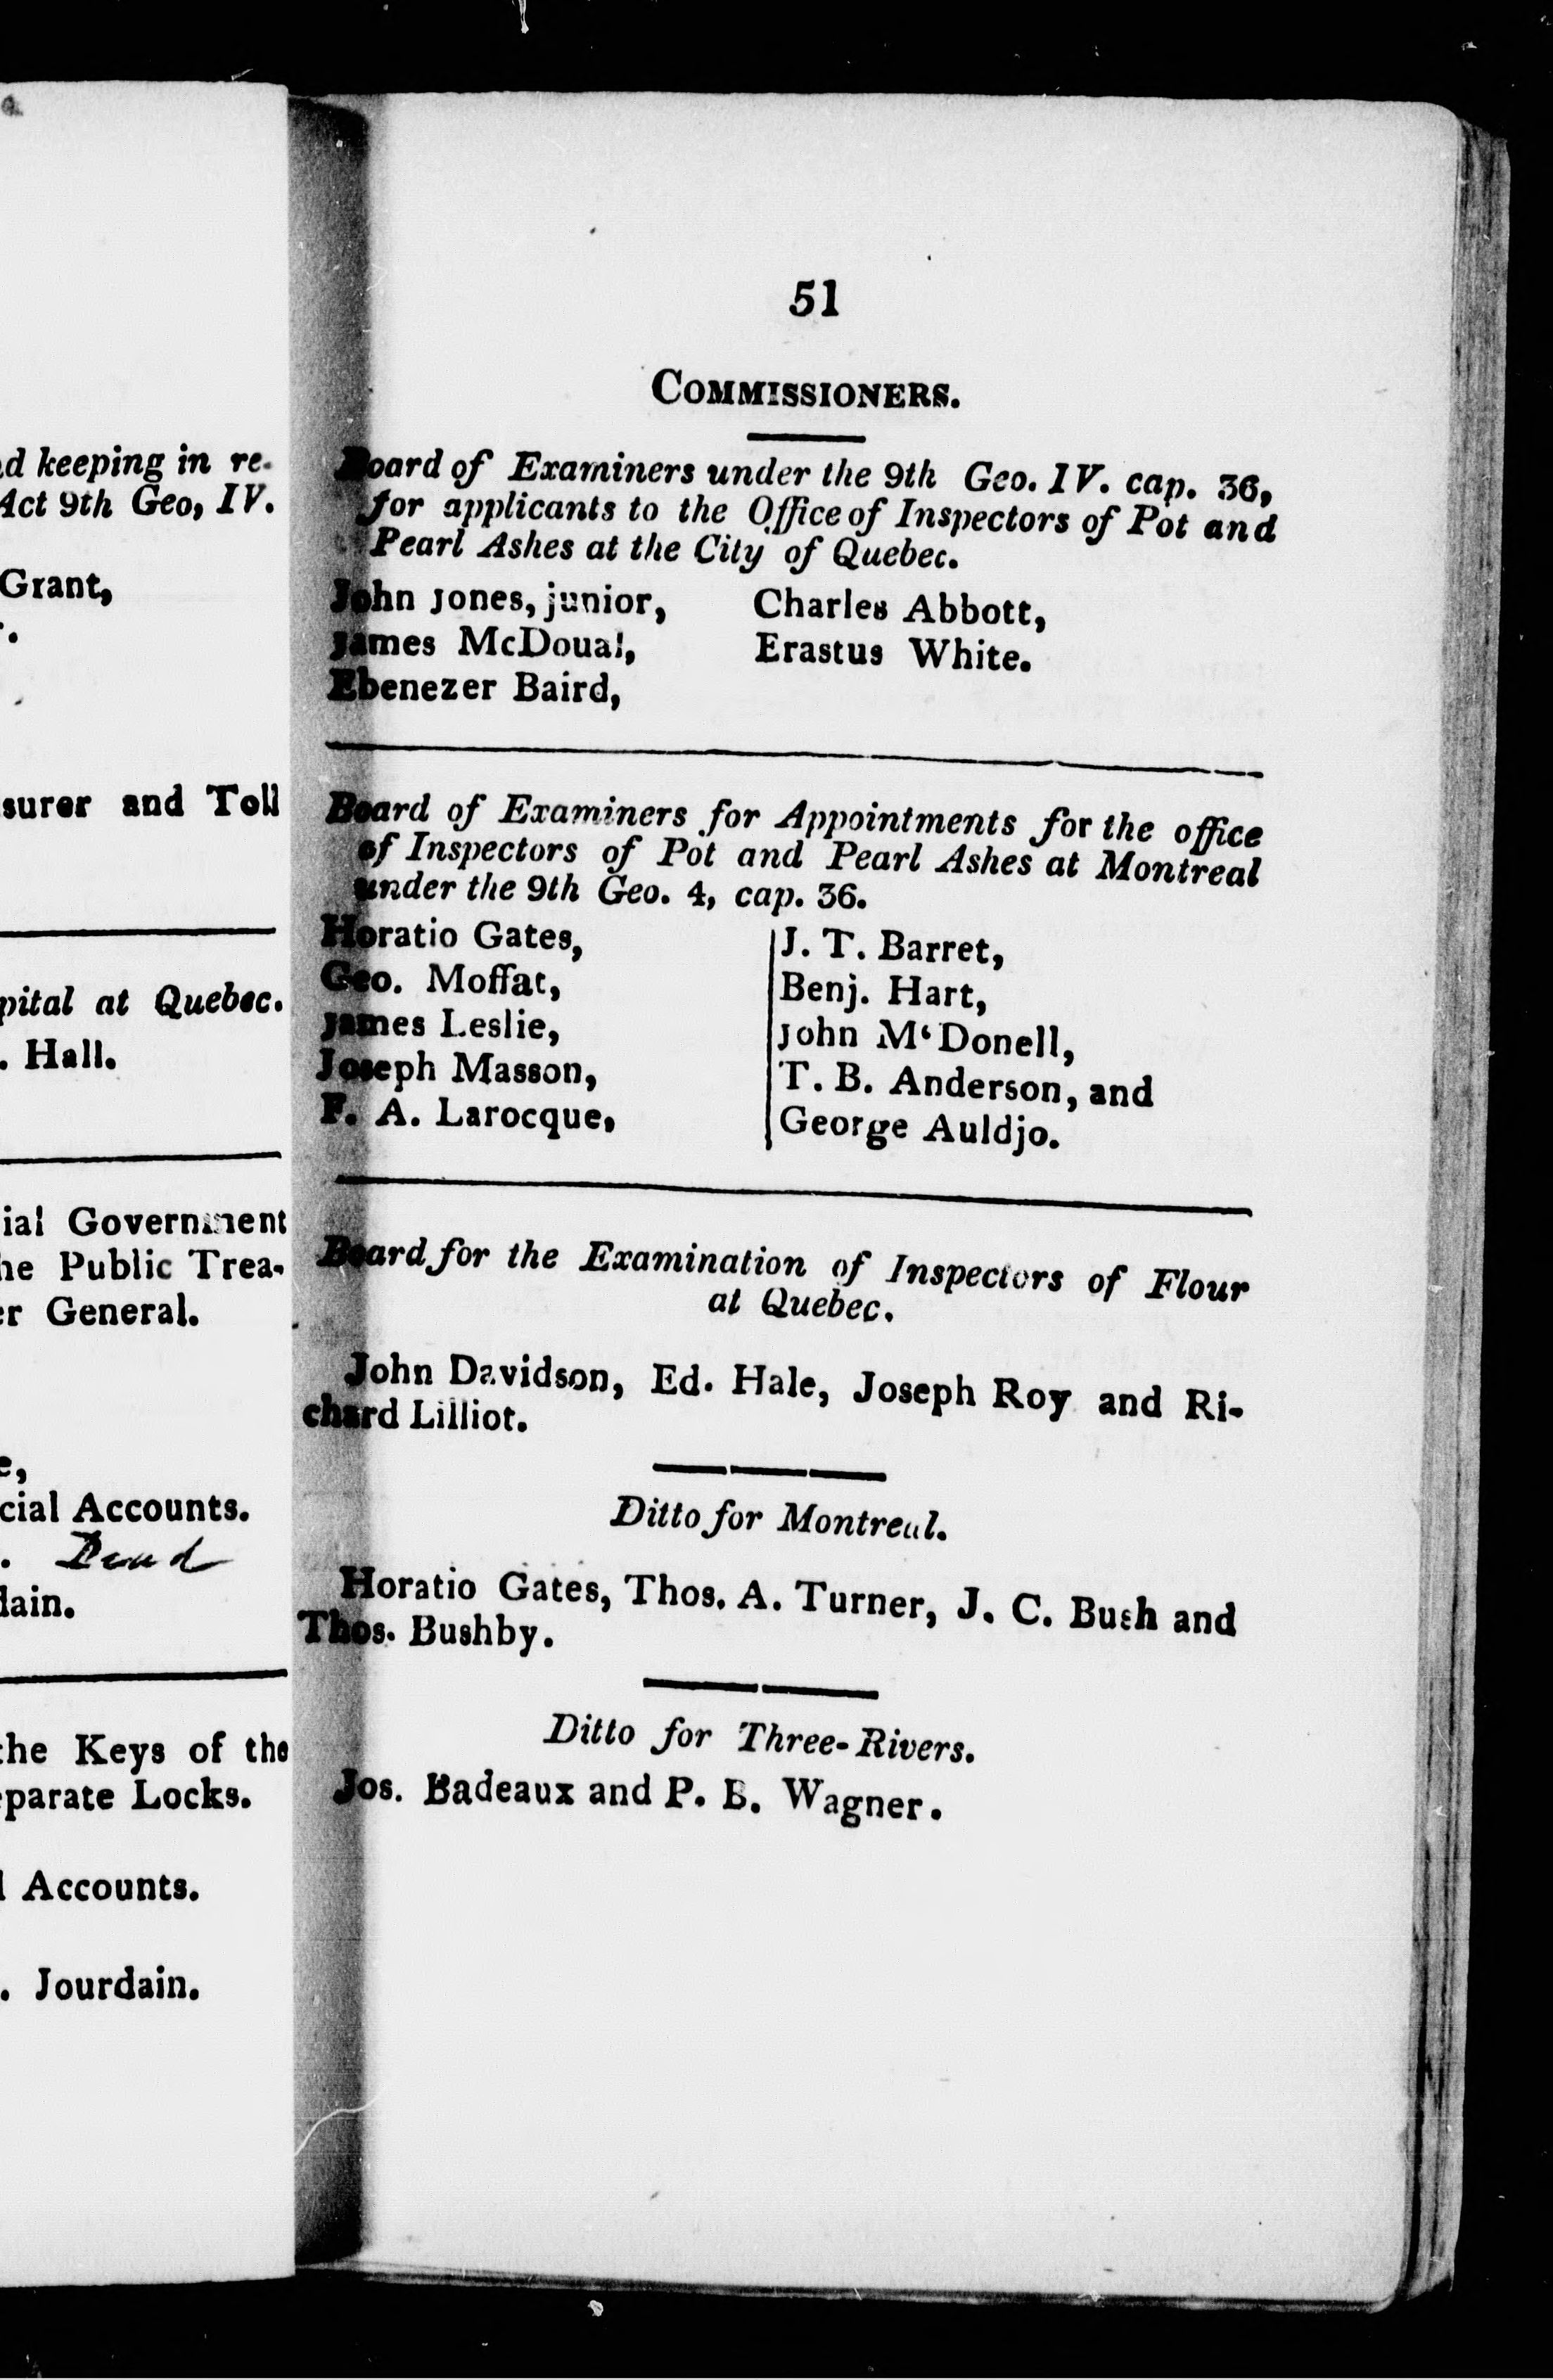 d keeping in re-
Act 9th Geo, IV.
Grant,
surer and Toll
pital at Quebec.
. Hall.
ial Government
he Public Trea-
er General.
e,
cial Accounts.
. Dead
dain.
the Keys of the
eparate Locks.
l Accounts.
. Jourdain.
51
COMMISSIONERS.
Board of Examiners under the 9th Geo. IV. cap. 36,
for applicants to the Office of Inspectors of Pot and
Pearl Ashes at the City of Quebec.
John Jones, junior, Charles Abbott,
James McDoual, Erastus White.
Ebenezer Baird,
Board of Examiners for Appointments for the office
of Inspectors of Pot and Pearl Ashes at Montreal
under the 9th Geo. 4, cap. 36.
Horatio Gates, J. T. Barret,
Geo. Moffat, Benj. Hart,
James Leslie, John M'Donell,
Joseph Masson, T. B. Anderson, and
F. A. Larocque, George Auldjo.
Board for the Examination of Inspectors of Flour
at Quebec.
John Davidson, Ed. Hale, Joseph Roy and Ri-
chard Lilliot.
Ditto for Montreal.
Horatio Gates, Thos. A. Turner, J. C. Bush and
Thos. Bushby.
Ditto for Three-Rivers.
Jos. Badeaux and P. B. Wagner.